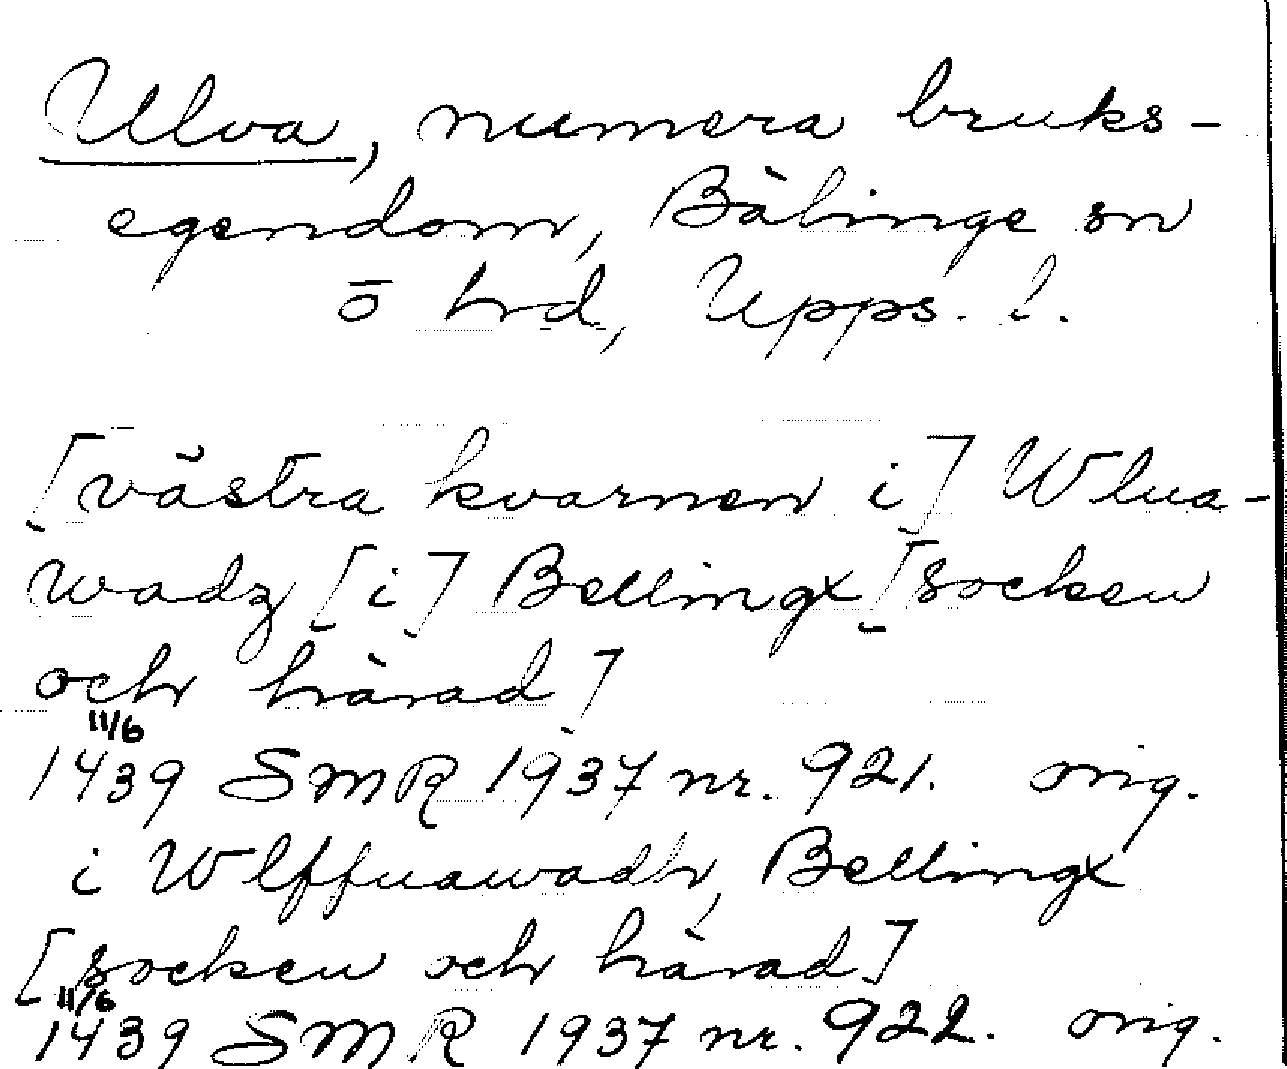 Ulva, numera bruks-
egendom, Bälinge sn
o hd, Upps. l.
[västra kvarnen i] Wlua-
wadz [i] Bellingx [socken
och härad]
11/6
1439 SMR 1937 nr. 921. orig.
i Wlffuawadh, Bellingx
[socken och härad]
11/6
1439 SMR 1937 nr. 922. orig.